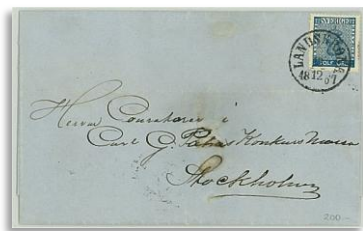 SVERIGE
TOLF ÖRE
LANDSKRONA
18 12 67
Herrar Curatorer i
Carl G. Konkurs Massa
Stockholm
200:-